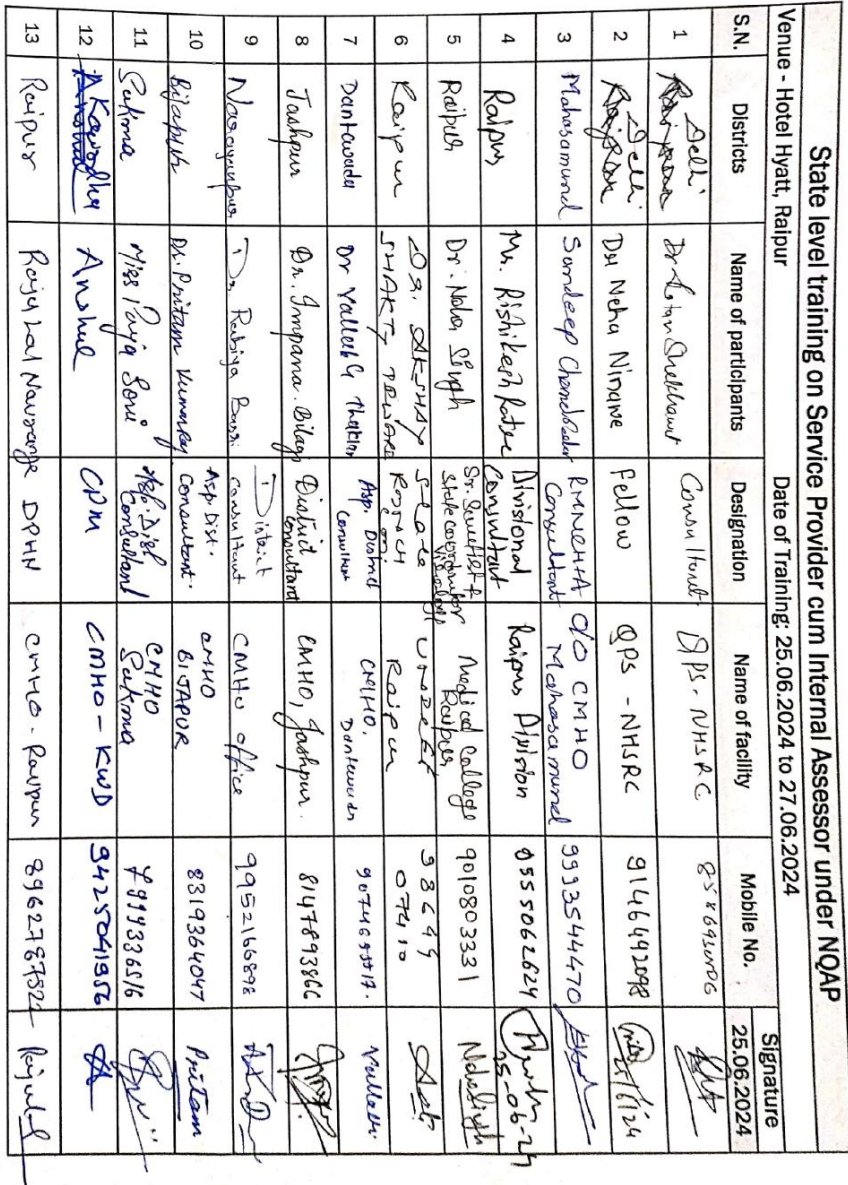 State level training on Service Provider cum Internal Assessor under NQAP
Venue - Hotel Hyatt, Raipur Date of Training: 25.06.2024 to 27.06.2024
S.N. Districts Name of participants Designation Name of facility Mobile No. Signature 25.06.2024
1 Delhi Consultant QPS - NHSRC
2 Delhi Dr Neha Ningwe Fellow QPS - NHSRC 9146492098 25/6/24
3 Mahasamund Sandeep RMNCH+A Consultant O/O CMHO Mahasamund 9993544470
4 Raipur Mr. Rishikesh Divisional Consultant Raipur Division 25-06-24
5 Raipur Dr. Neha Singh State Coordinator Medical College Raipur 9010803331 Neha Singh
6 Raipur Dr. AKSHAY SHAKTI State Raipur 98649 07410
7 Dantewada Dr Vallabh Asp. District Consultant CMHO, Dantewada Vallabh
8 Jashpur Dr. Impana. Bilagi District Consultant CMHO, Jashpur. 8147893866
9 Narayanpur Dr. Rabiya District Consultant CMHO office 9952166898
10 Bijapur Dr. Pritam Kumar Asp. Dist. Consultant. CMHO BIJAPUR 8319364047 Pritam
11 Sukma Miss Puja Soni Asp. Dist Consultant CMHO Sukma
12 Kawardha Anshul CPM CMHO - KWD 9425041956
13 Raipur Raju Lal Naurange DPHN CMHO - Raipur